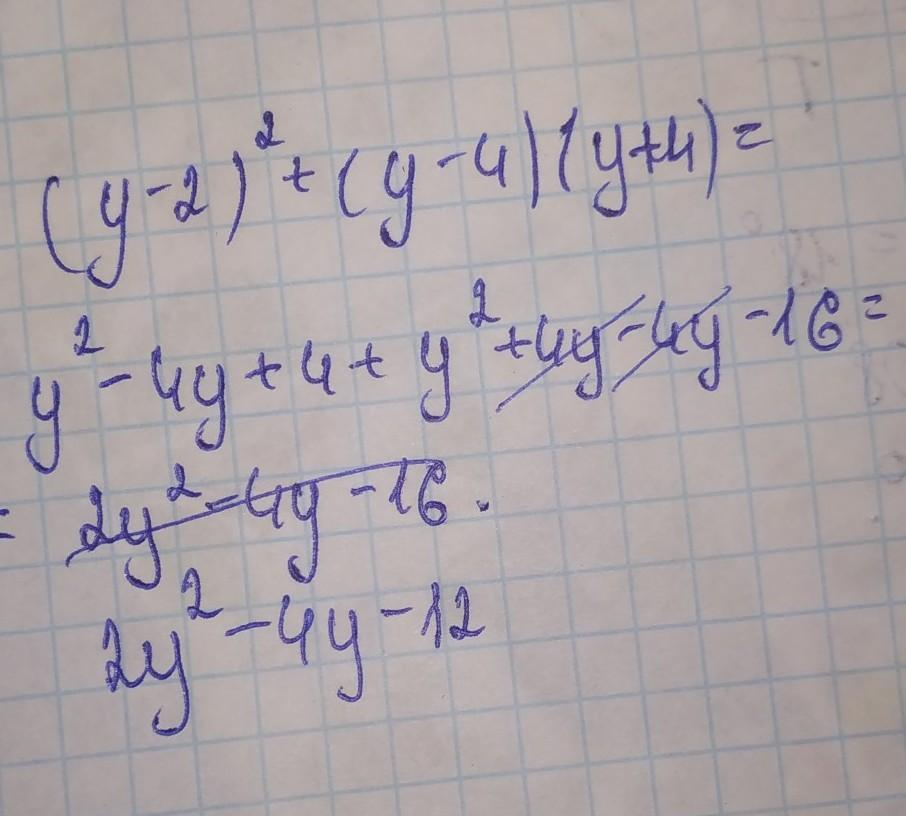 (y-2)²+(y-4)(y+4)=
y²-4y+4+y²+4y-4y-16=
= 2y²-4y-16.
2y²-4y-12